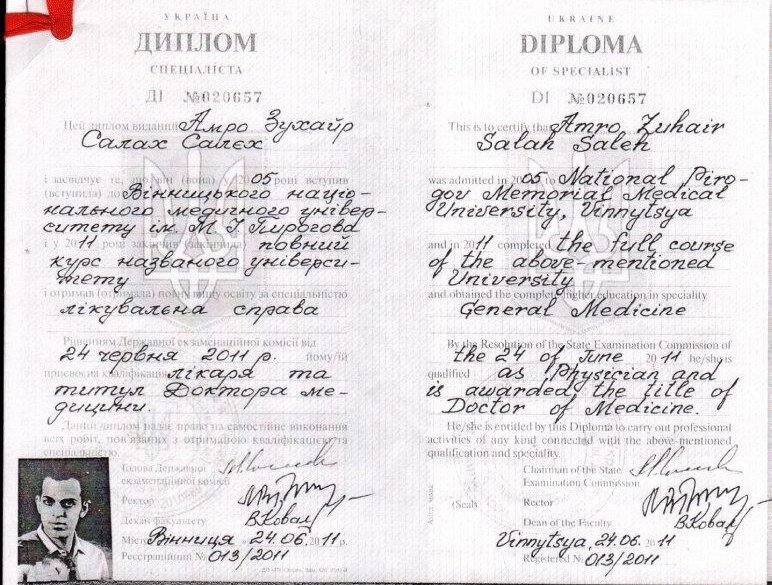 УКРАЇНА
ДИПЛОМ
СПЕЦІАЛІСТА
ДІ №020657
Цей диплом виданий Амро Зухайр
Салах Салєх
і засвідчує те, що він (вона) у 2005 році вступив
(вступила) до Вінницького націо-
нального медичного універ-
ситету ім. М. І. Пирогова
і у 2011 році закінчив (закінчила) повний
курс названого універси-
тету
і отримав (отримала) повну вищу освіту за спеціальністю
лікувальна справа
Рішенням Державної екзаменаційної комісії від
24 червня 2011 р. йому/їй
присвоєна кваліфікація лікаря та
титул Доктора ме-
дицини.
Даний диплом надає право на самостійне виконання
всіх робіт, пов'язаних з отриманою кваліфікацією та
спеціальністю.
Голова Державної
екзаменаційної комісії
Ректор
Декан факультету В.Ковал
Вінниця 24.06.2011 р.
Реєстраційний № 013/2011
UKRAINE
DIPLOMA
OF SPECIALIST
DI №020657
This is to certify that Amro Zuhair
Salah Saleh
was admitted in 2005 to National Piro-
gov Memorial Medical
University, Vinnytsya
and in 2011 completed the full course
of the above-mentioned
University
and obtained the complete higher education in speciality
General Medicine
By the Resolution of the State Examination Commission of
the 24 of June 2011 he/she is
qualified as Physician and
is awarded the title of
Doctor of Medicine.
He/she is entitled by this Diploma to carry out professional
activities of any kind connected with the above-mentioned
qualification and speciality.
Chairman of the State
Examination Commission
(Seal) Rector
Dean of the Faculty В.Ковал
Vinnytsya, 24.06.2011
Registered № 013/2011